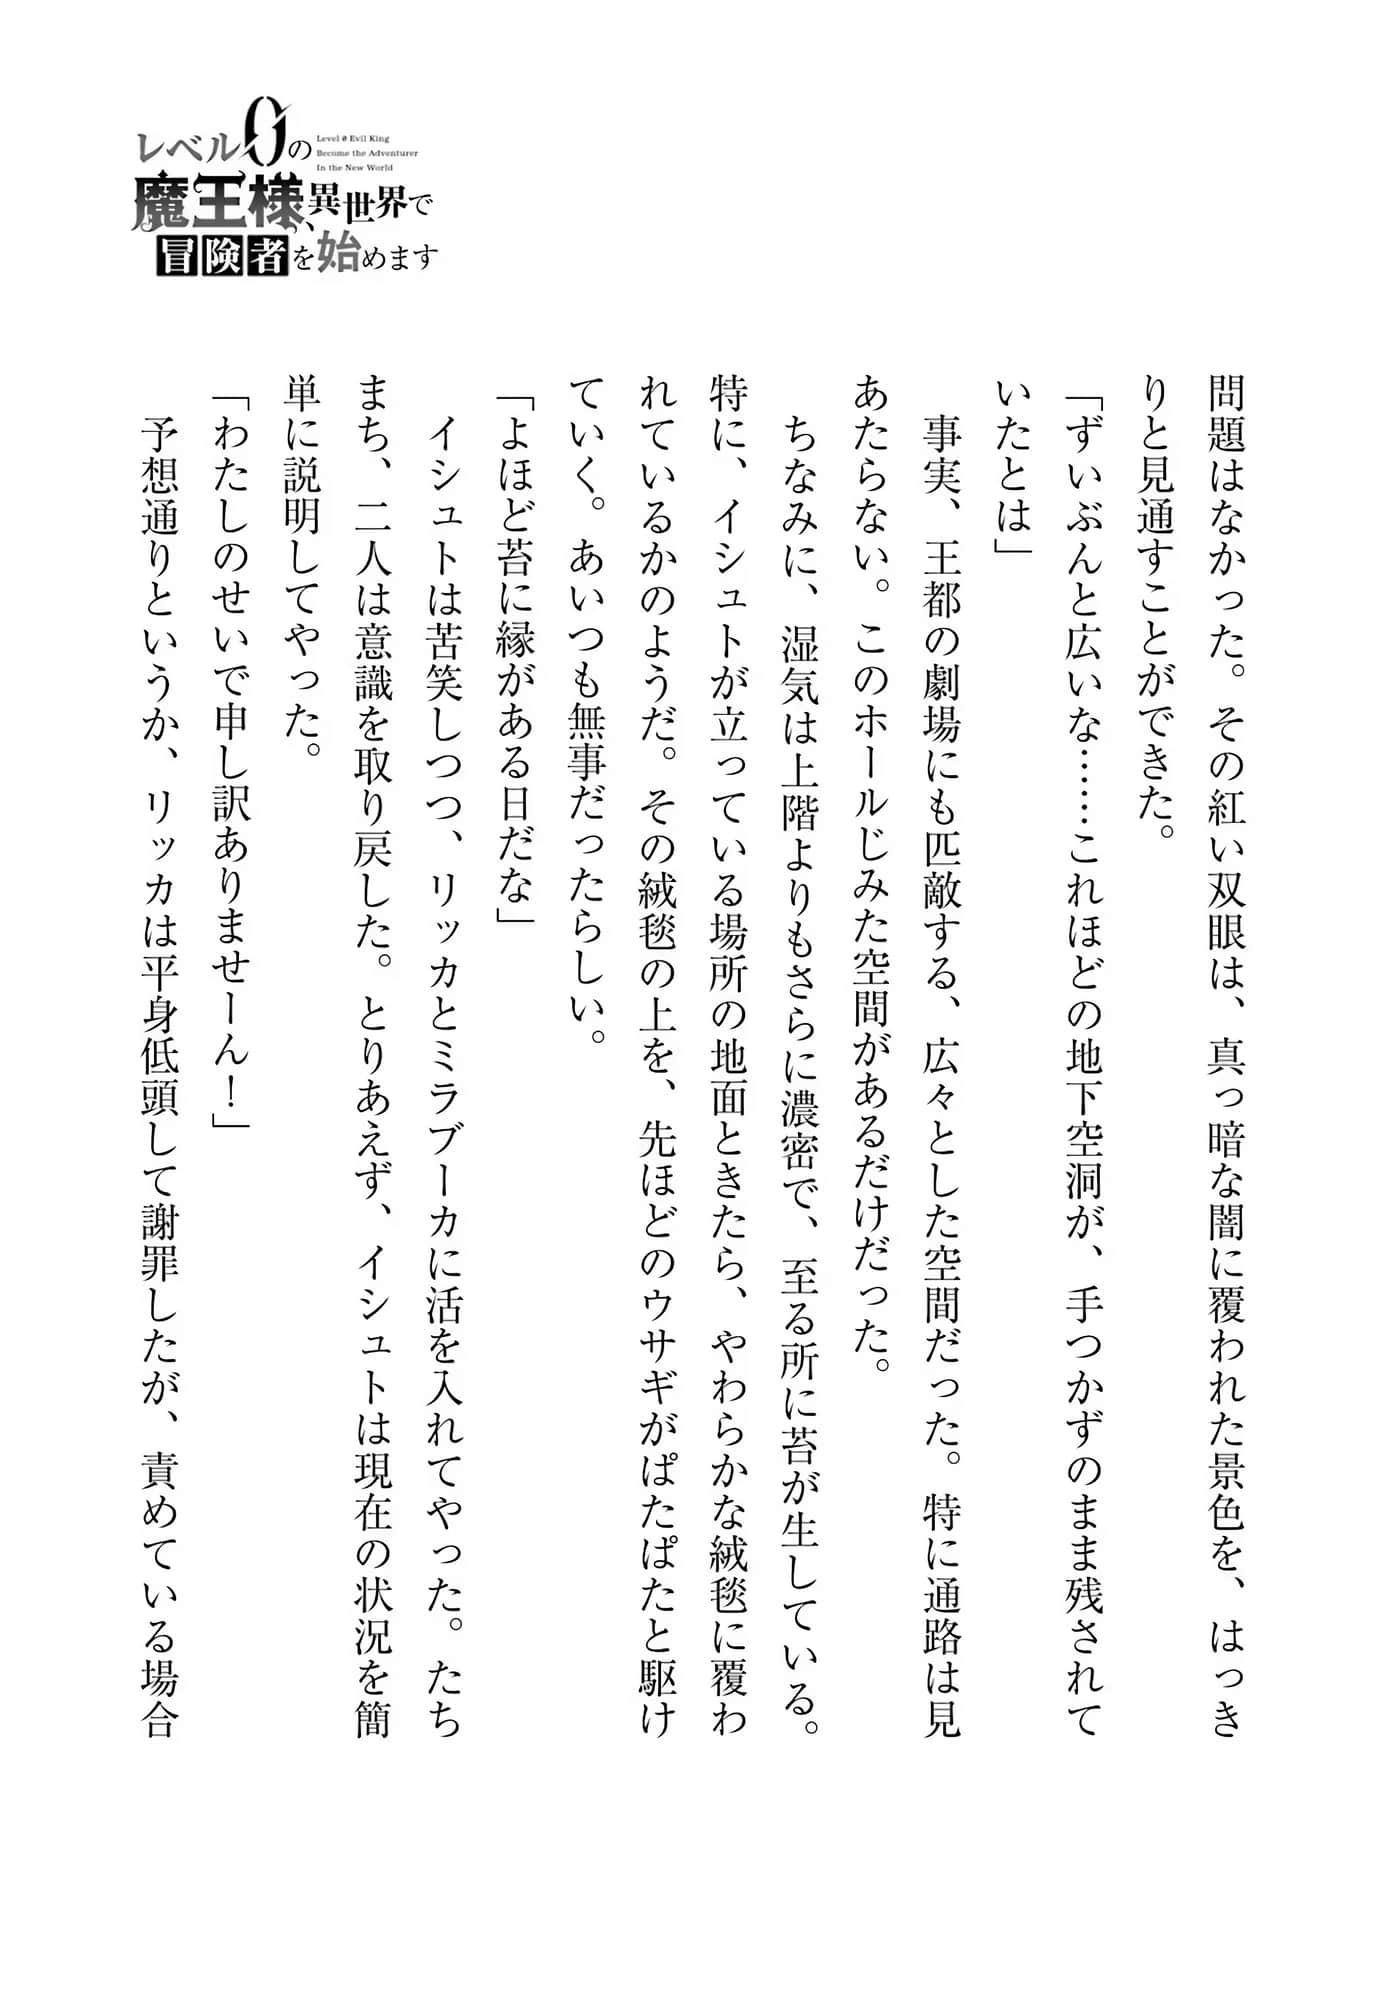 レベル0の
Level 0 Evil King
Become the Adventurer
In the New World
魔王様、異世界で
冒険者を始めます
問題はなかった。その紅い双眼は、真っ暗な闇に覆われた景色を、はっき
りと見通すことができた。
「ずいぶんと広いな……これほどの地下空洞が、手つかずのまま残されて
いたとは」
　事実、王都の劇場にも匹敵する、広々とした空間だった。特に通路は見
あたらない。このホールじみた空間があるだけだった。
　ちなみに、湿気は上階よりもさらに濃密で、至る所に苔が生している。
特に、イシュトが立っている場所の地面ときたら、やわらかな絨毯に覆わ
れているかのようだ。その絨毯の上を、先ほどのウサギがぱたぱたと駆け
ていく。あいつも無事だったらしい。
「よほど苔に縁がある日だな」
　イシュトは苦笑しつつ、リッカとミラブーカに活を入れてやった。たち
まち、二人は意識を取り戻した。とりあえず、イシュトは現在の状況を簡
単に説明してやった。
「わたしのせいで申し訳ありませーん！」
　予想通りというか、リッカは平身低頭して謝罪したが、責めている場合